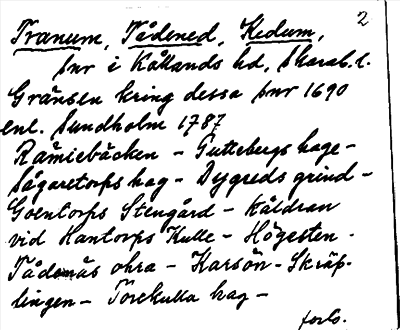 2
Tranum, Tådened, Kedum,
snr i Kållands hd, Skarab. l.
Gränsen kring dessa snr 1690
enl. Sundholm 1787
Råmiebäcken – Puttebergs hage –
Sågaretorps hag – Dygreds grind –
Goentorps Stengård – Kåldran
vid Hantorps Kulle – Högesten –
Tådenås ohra – Karsön – Skräp-
lingen – Torekulla hag –
forts.